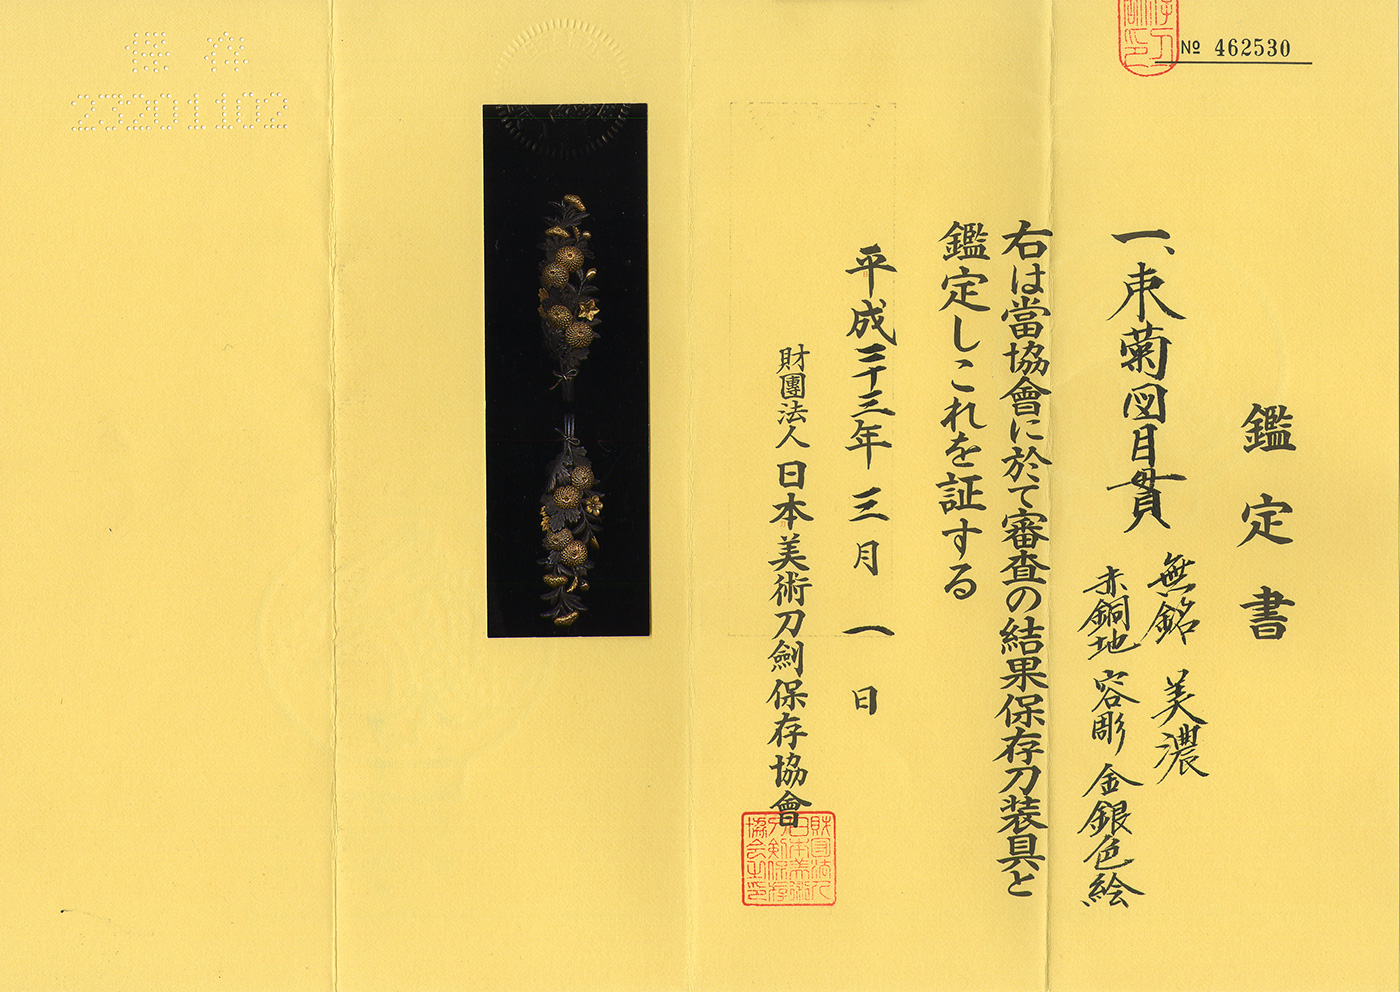 № 462530
鑑定書
一、束菊図目貫
無銘 美濃
赤銅地 容彫 金銀色絵
右は當協會に於て審査の結果保存刀装具と
鑑定しこれを証する
平成二十三年 三月 一日
財團法人 日本美術刀劍保存協會
財団法人日本美術刀剣保存協会之印
23201102